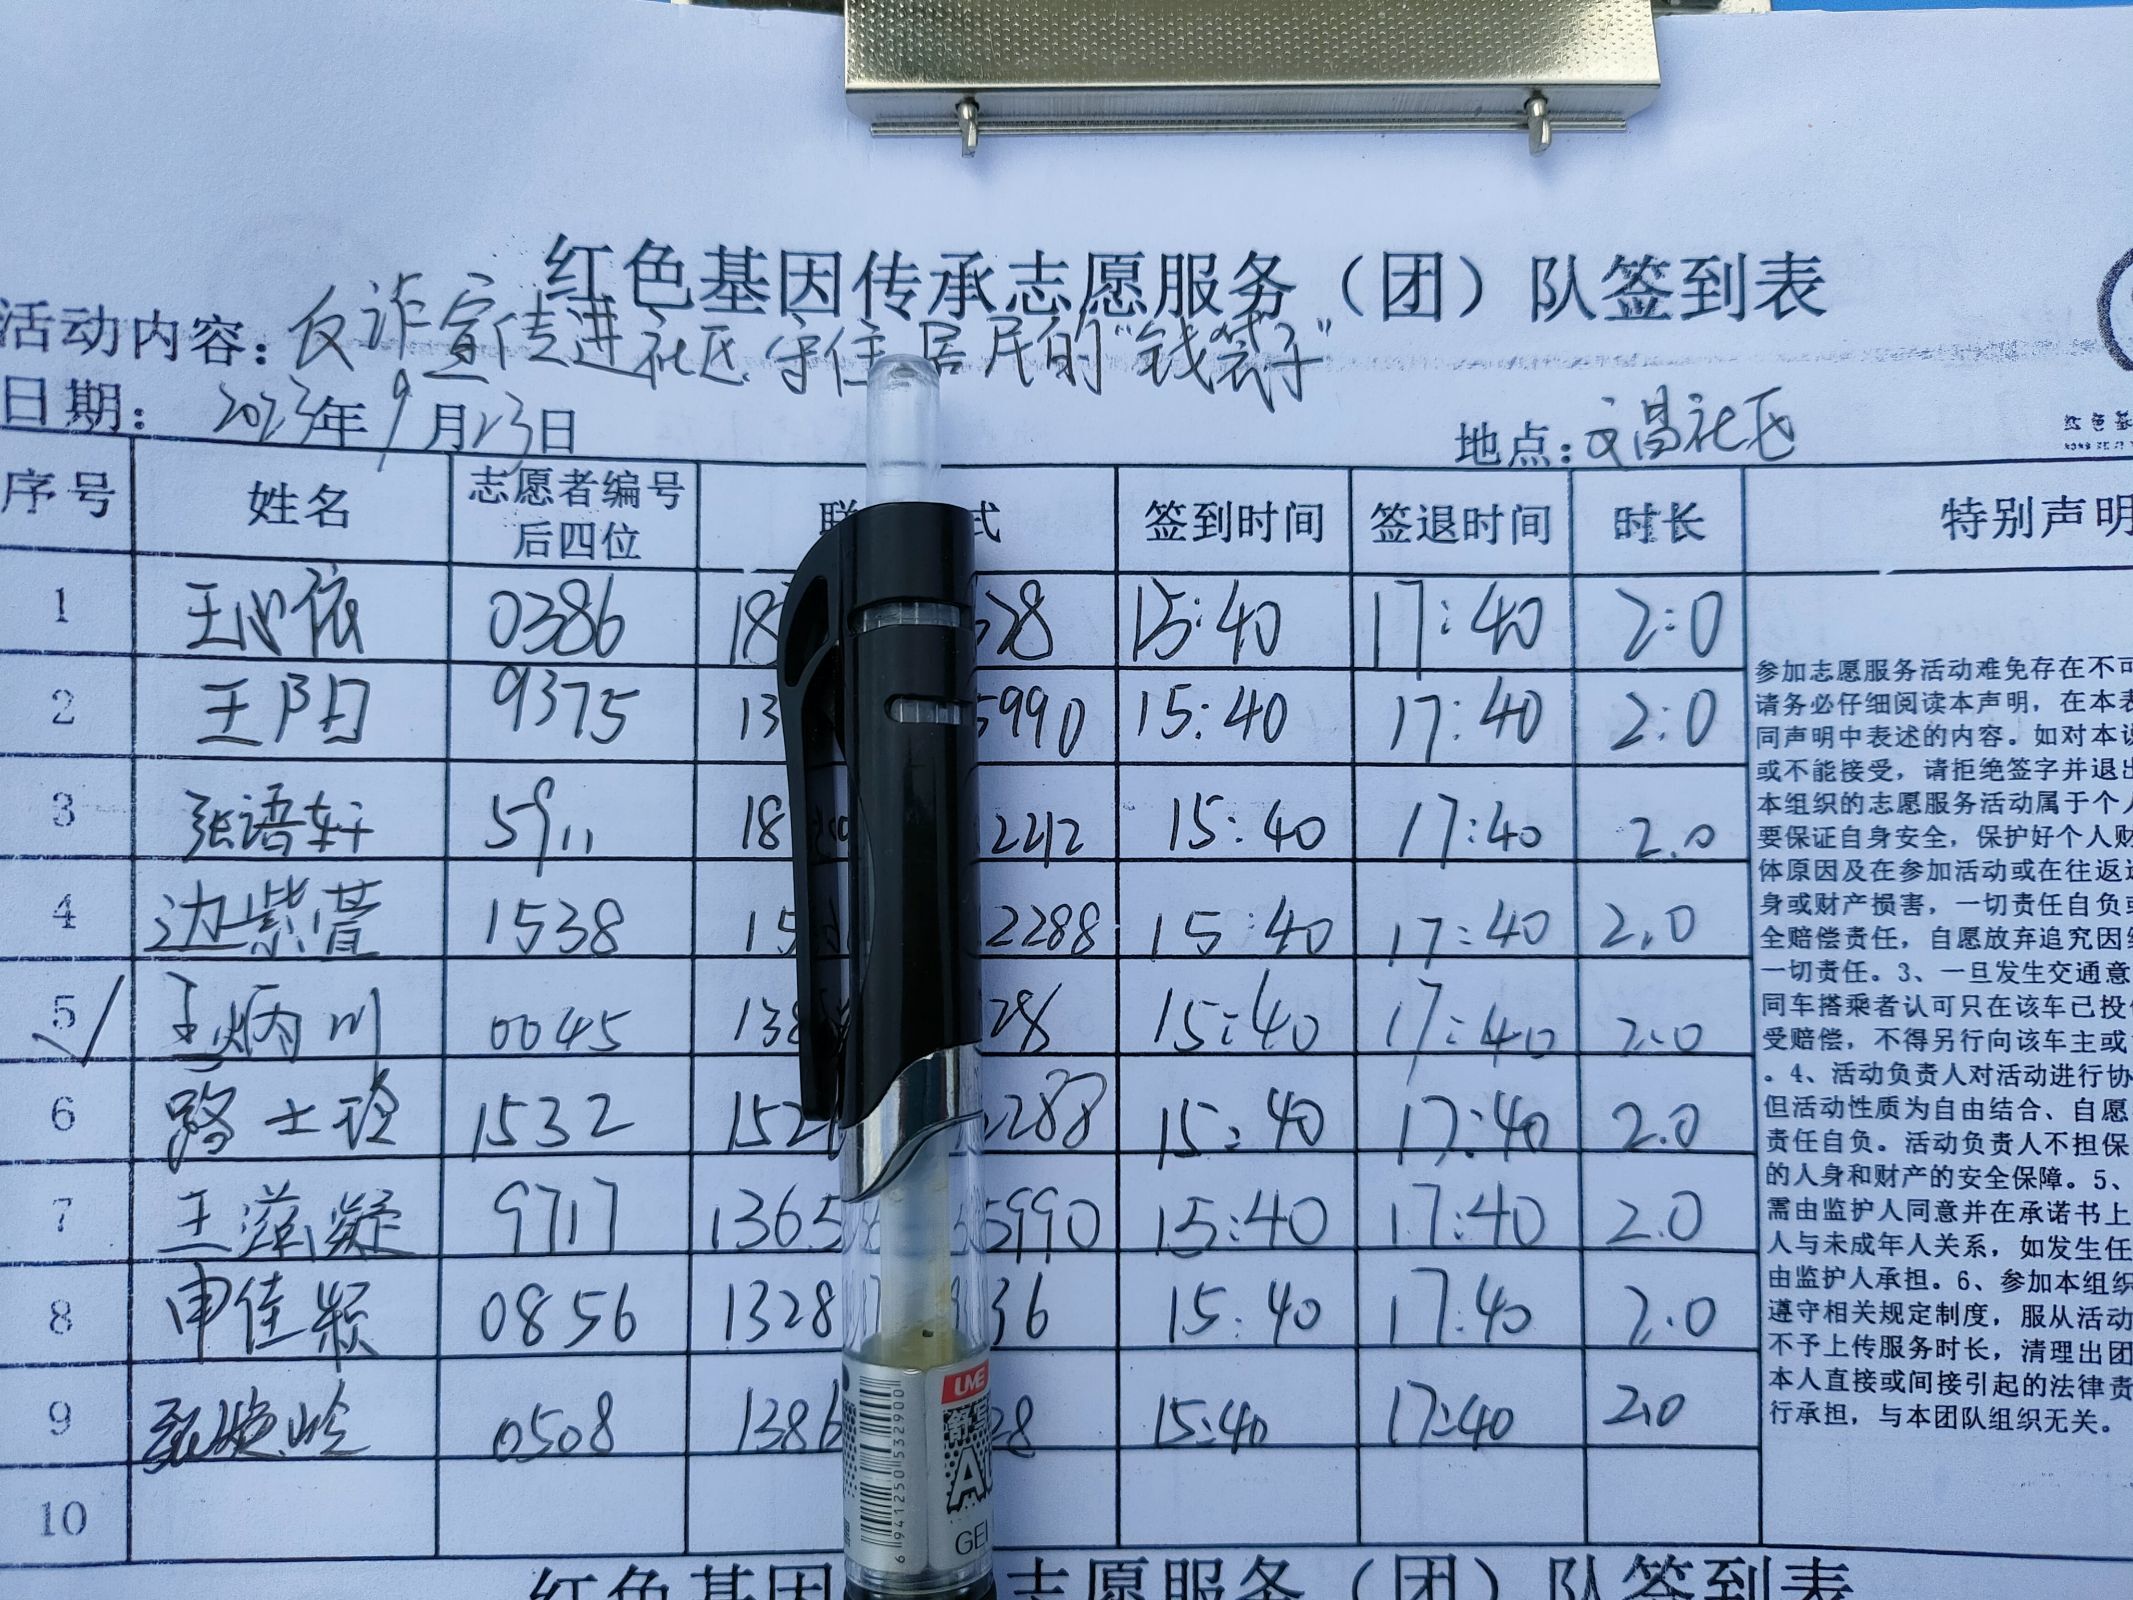 红色基因传承志愿服务（团）队签到表
活动内容：反诈宣传进社区 守住居民的"钱袋子"
日期：2023年9月23日 地点：文昌社区
序号 姓名 志愿者编号后四位 联 式 签到时间 签退时间 时长 特别声明
1 王心依 0386 18 328 15:40 17:40 2:0
2 王阳 9375 13 5990 15:40 17:40 2:0
3 张语轩 5911 18 2212 15:40 17:40 2.0
4 边紫萱 1538 15 2288 15:40 17:40 2.0
5 王炳川 0045 138 28 15:40 17:40 2.0
6 路士玲 1532 152 2288 15:40 17:40 2.0
7 王滢凝 9717 1365 5990 15:40 17:40 2.0
8 申佳颖 0856 1328 36 15:40 17:40 2.0
9 0508 1386 28 15:40 17:40 2.0
10
参加志愿服务活动难免存在不可
请务必仔细阅读本声明，在本表
同声明中表述的内容。如对本说
或不能接受，请拒绝签字并退出
本组织的志愿服务活动属于个人
要保证自身安全，保护好个人财
体原因及在参加活动或在往返途
身或财产损害，一切责任自负或
全赔偿责任，自愿放弃追究因
一切责任。3、一旦发生交通意
同车搭乘者认可只在该车已投
受赔偿，不得另行向该车主或
。4、活动负责人对活动进行协
但活动性质为自由结合、自愿
责任自负。活动负责人不担保
的人身和财产的安全保障。5、
需由监护人同意并在承诺书上
人与未成年人关系，如发生任
由监护人承担。6、参加本组织
遵守相关规定制度，服从活动
不予上传服务时长，清理出团
本人直接或间接引起的法律责
行承担，与本团队组织无关。
UME
6 941250 532900
GEL
红色基因 志愿服务（团）队签到表